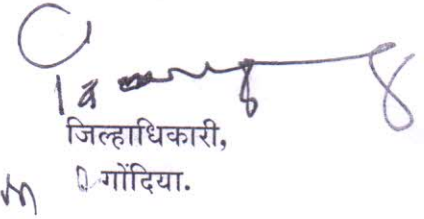 जिल्हाधिकारी,
गोंदिया.